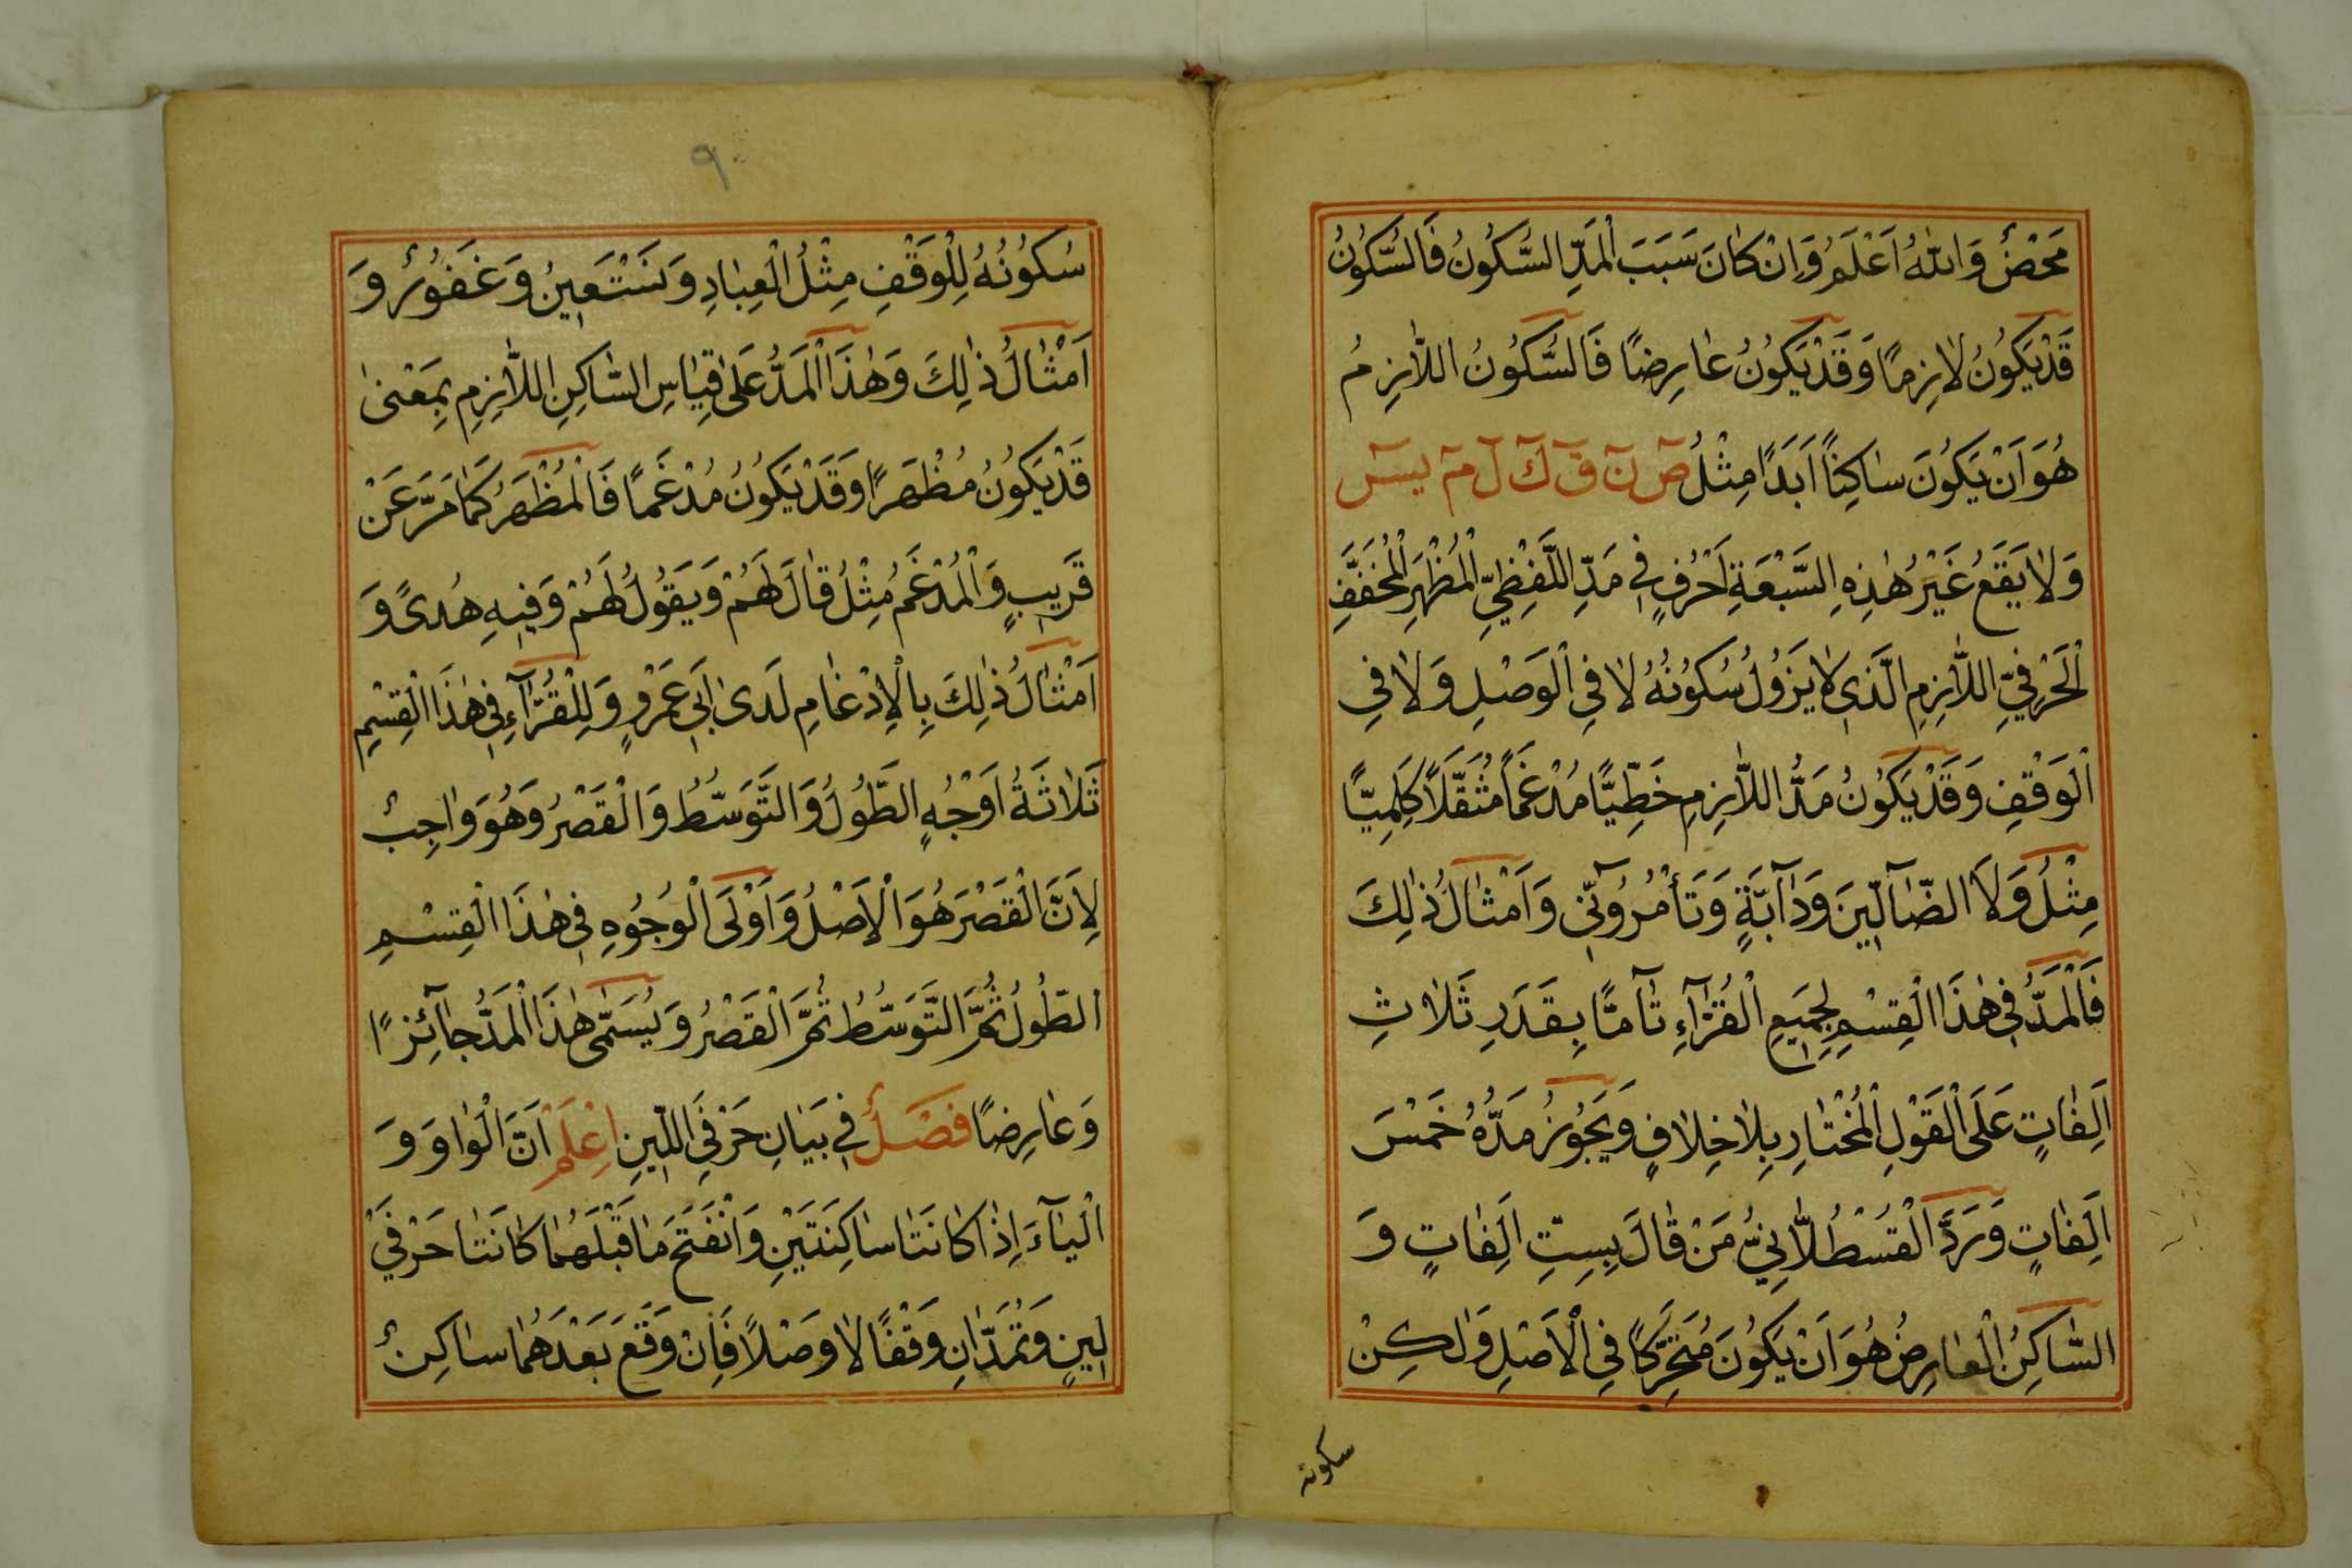 مَحْضٌ وَاللّٰهُ اَعْلَمُ وَاِنْ كٰانَ سَبَبَ الْمَدِّ السُّكُونُ فَالسُّكُونُ
قَدْيَكُونُ لاٰزِمًا وَقَدْيَكُونُ عٰارِضًا فَالسُّكُونُ اللّٰازِمُ
هُوَاَنْ يَكُونَ سٰاكِنًا اَبَدًا مِثْلُ صٓ نٓ قٓ كٓ لٓ مٓ يسٓ
وَلاٰيَقَعُ غَيْرُ هٰذِهِ السَّبْعَةِ اَحْرُفٍ فِي مَدِّ اللَّفْظِيِّ الْمُظْهَرِ الْمُخَفَّفِ
الْحَرْفِيِّ اللّٰازِمِ الَّذِي لاٰيَزُولُ سُكُونُهُ لاٰ فِي الْوَصْلِ وَلاٰ فِي
الْوَقْفِ وَقَدْيَكُونُ مَدُّ اللّٰازِمِ خَطِّيًّا مُدْغَمًا مُثَقَّلًا كَلِمِيًّا
مِثْلُ وَلاَ الضّٰٓالّٖينَ وَدٰٓابَّةٍ وَتَأْمُرُوٓنّٖى وَاَمْثٰالُ ذٰلِكَ
فَالْمَدُّ فِي هٰذَا الْقِسْمِ لِجَمٖيعِ الْقُرّٰٓاءِ تٰٓامًّا بِقَدَرِ ثَلاٰثِ
اَلِفٰاتٍ عَلَى الْقَوْلِ الْمُخْتٰارِ بِلاٰخِلاٰفٍ وَيَجُوزُ مَدُّهُ خَمْسَ
اَلِفٰاتٍ وَرَدَّ الْقُسْطُلّٰانِيُّ مَنْ قٰالَ بِسِتِّ اَلِفٰاتٍ وَ
السّٰاكِنُ الْعٰارِضُ هُوَاَنْ يَكُونَ مُتَحَرِّكًا فِي الْاَصْلِ وَلٰكِنْ
سكونه
٩
سُكُونُهُ لِلْوَقْفِ مِثْلُ الْعِبٰادِ وَنَسْتَعٖينُ وَغَفُورٌ وَ
اَمْثٰالُ ذٰلِكَ وَهٰذَا الْمَدُّ عَلٰى قِيٰاسِ السّٰاكِنِ اللّٰازِمِ بِمَعْنٰى
قَدْيَكُونُ مُظْهَرًا وَقَدْيَكُونُ مُدْغَمًا فَالْمُظْهَرُ كَمٰا مَرَّ عَنْ
قَرٖيبٍ وَالْمُدْغَمُ مِثْلُ قٰالَ لَهُمْ وَيَقُولُ لَهُمْ وَفٖيهِ هُدىً وَ
اَمْثٰالُ ذٰلِكَ بِالْاِدْغٰامِ لَدٰى اَبٖي عَمْرٍو وَلِلْقُرّٰٓاءِ فٖي هٰذَا الْقِسْمِ
ثَلٰاثَةُ اَوْجُهٍ الطُّولُ وَالتَّوَسُّطُ وَالْقَصْرُ وَهُوَ وٰاجِبٌ
لِاَنَّ الْقَصْرَ هُوَ الْاَصْلُ وَاَوْلَى الْوُجُوهِ فٖي هٰذَا الْقِسْمِ
الطُّولُ ثُمَّ التَّوَسُّطُ ثُمَّ الْقَصْرُ وَيُسَمّٰى هٰذَا الْمَدُّ جٰٓائِزًا
وَعٰارِضًا فَصْلٌ فٖي بَيٰانِ حَرْفَيِ اللّٖينِ اِعْلَمْ اَنَّ الْوٰاوَ وَ
الْيٰٓاءَ اِذٰا كٰانَتٰا سٰاكِنَتَيْنِ وَانْفَتَحَ مٰا قَبْلَهُمٰا كٰانَتٰا حَرْفَيْ
لٖينٍ وَتُمَدّٰانِ وَقْفًا لاٰ وَصْلًا فَاِنْ وَقَعَ بَعْدَهُمٰا سٰاكِنٌ